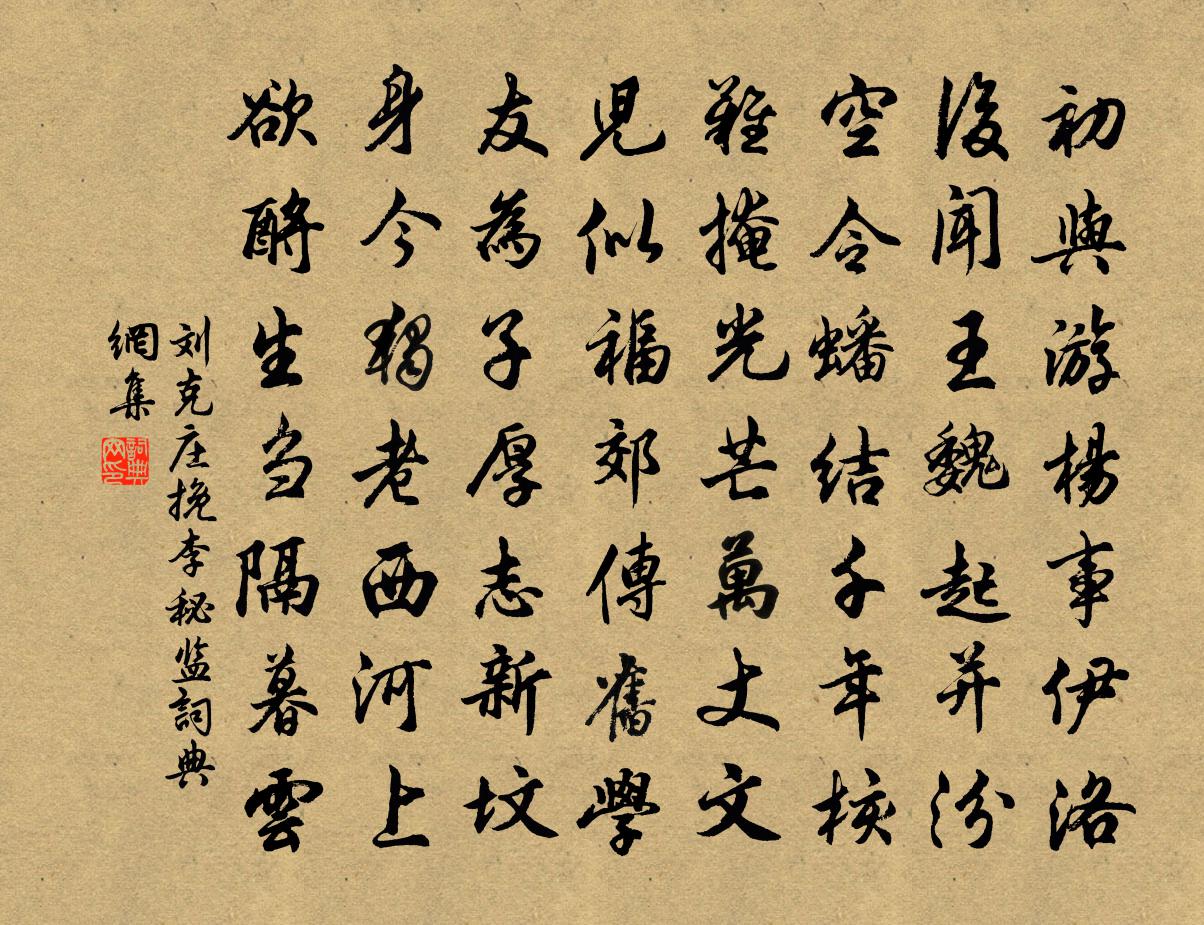 初與游楊事伊洛
後聞王魏起并汾
空令蟠結千年核
難掩光芒萬丈文
兒似福郊傳舊學
友為子厚志新墳
身今獨老西河上
欲酹生芻隔暮雲
刘克庄挽李秘监詞典
網集
詞典网印